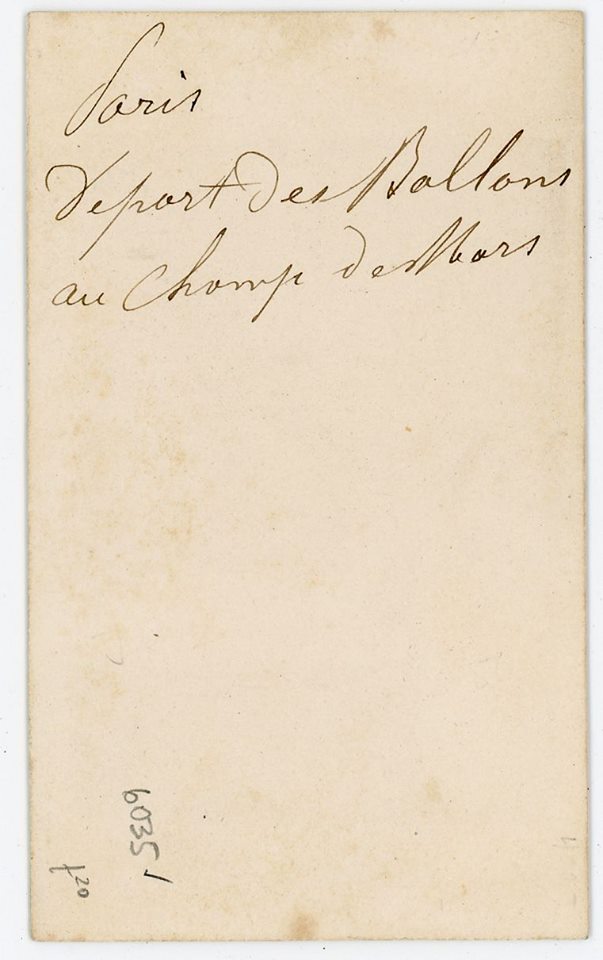 Paris
Depart des Ballons
au Champ de Mars
6035
f20